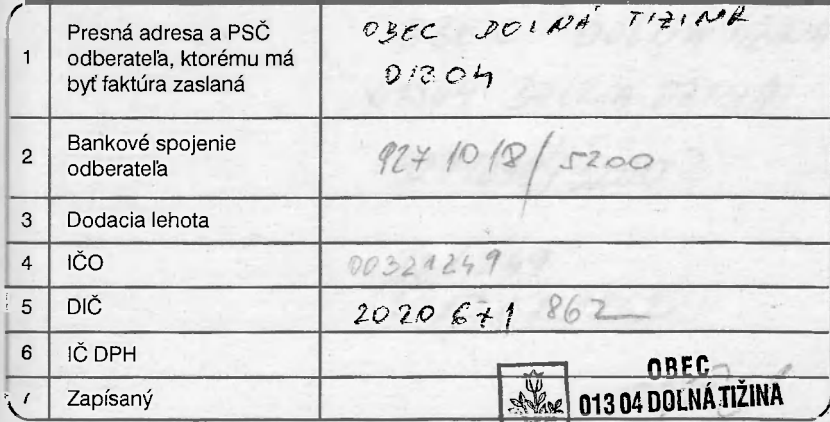 1 Presná adresa a PSČ odberateľa, ktorému má byť faktúra zaslaná
OBEC DOLNÁ TIŽINA
013 04
2 Bankové spojenie odberateľa
9271018/5200
3 Dodacia lehota
4 IČO
00321249
5 DIČ
2020 671 862
6 IČ DPH
7 Zapísaný
OBEC
013 04 DOLNÁ TIŽINA